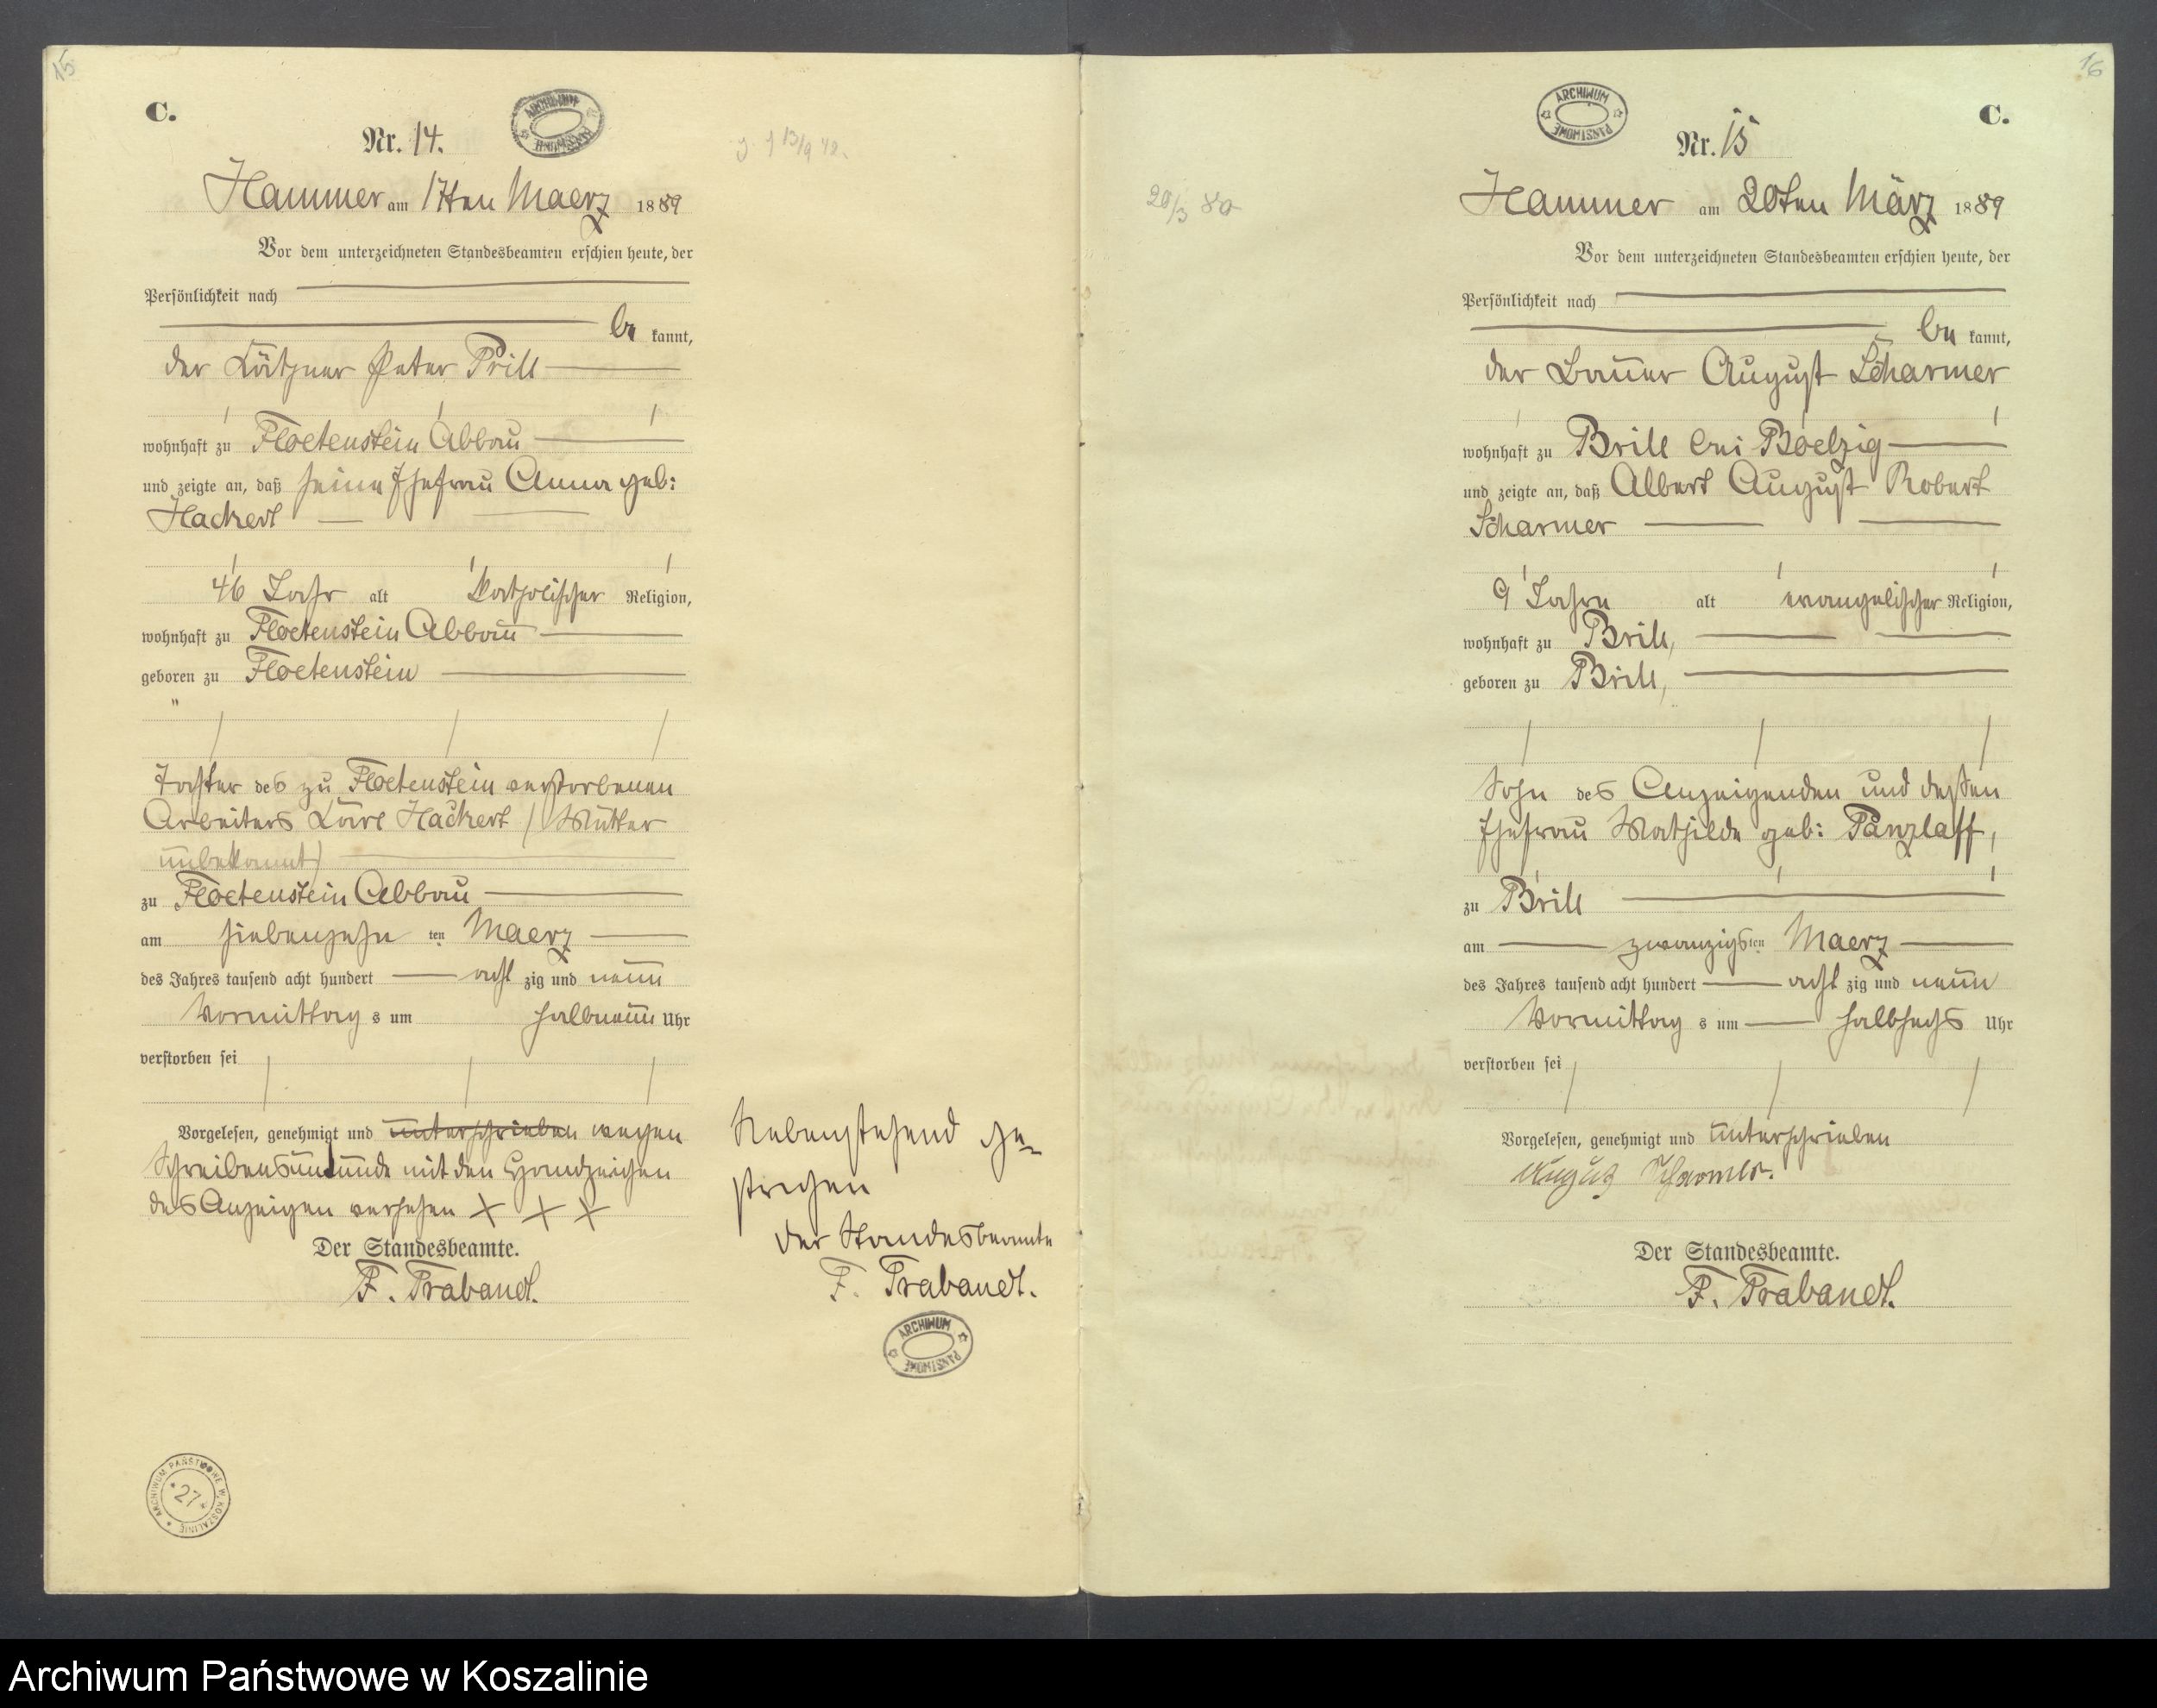 15
C.
ARCHIWUM PAŃSTWOWE
Nr. 14.
Hammer am 17ten Maerz 1889
Vor dem unterzeichneten Standesbeamten erschien heute, der
Persönlichkeit nach
be kannt,
der Kätzner Peter Prill
wohnhaft zu Floetenstein Abbau
und zeigte an, daß seine Ehefrau Anna geb:
Hackert
46 Jahr alt katholischer Religion,
wohnhaft zu Floetenstein Abbau
geboren zu Floetenstein
"
Tochter des zu Floetenstein verstorbenen
Arbeiters Karl Hackert / Mutter
unbekannt)
zu Floetenstein Abbau
am siebenzehn ten Maerz
des Jahres tausend acht hundert acht zig und neun
Vormittag s um halbneun Uhr
verstorben sei
Vorgelesen, genehmigt und unterschrieben wegen
Schreibensunkunde mit den Handzeichen
des Anzeigen versehen X X X
Der Standesbeamte.
F. Trabandt.
Nebenstehend ge-
strichen
Der Standesbeamte
F. Trabandt.
ARCHIWUM PAŃSTWOWE
ARCHIWUM PAŃSTWOWE W KOSZALINIE
27
16
C.
ARCHIWUM PAŃSTWOWE
Nr. 15
20/3 80
Hammer am 20ten März 1889
Vor dem unterzeichneten Standesbeamten erschien heute, der
Persönlichkeit nach
be kannt,
der Bauer August Scharmer
wohnhaft zu Brill bei Boelzig
und zeigte an, daß Albert August Robert
Scharmer
9 Jahre alt evangelischer Religion,
wohnhaft zu Brill,
geboren zu Brill,
Sohn des Anzeigenden und dessen
Ehefrau Mathilde geb: Panzlaff,
zu Brill
am zwanzigsten Maerz
des Jahres tausend acht hundert acht zig und neun
Vormittag s um halbsechs Uhr
verstorben sei
Vorgelesen, genehmigt und unterschrieben
August Scharmer.
Der Standesbeamte.
F. Trabandt.
Archiwum Państwowe w Koszalinie